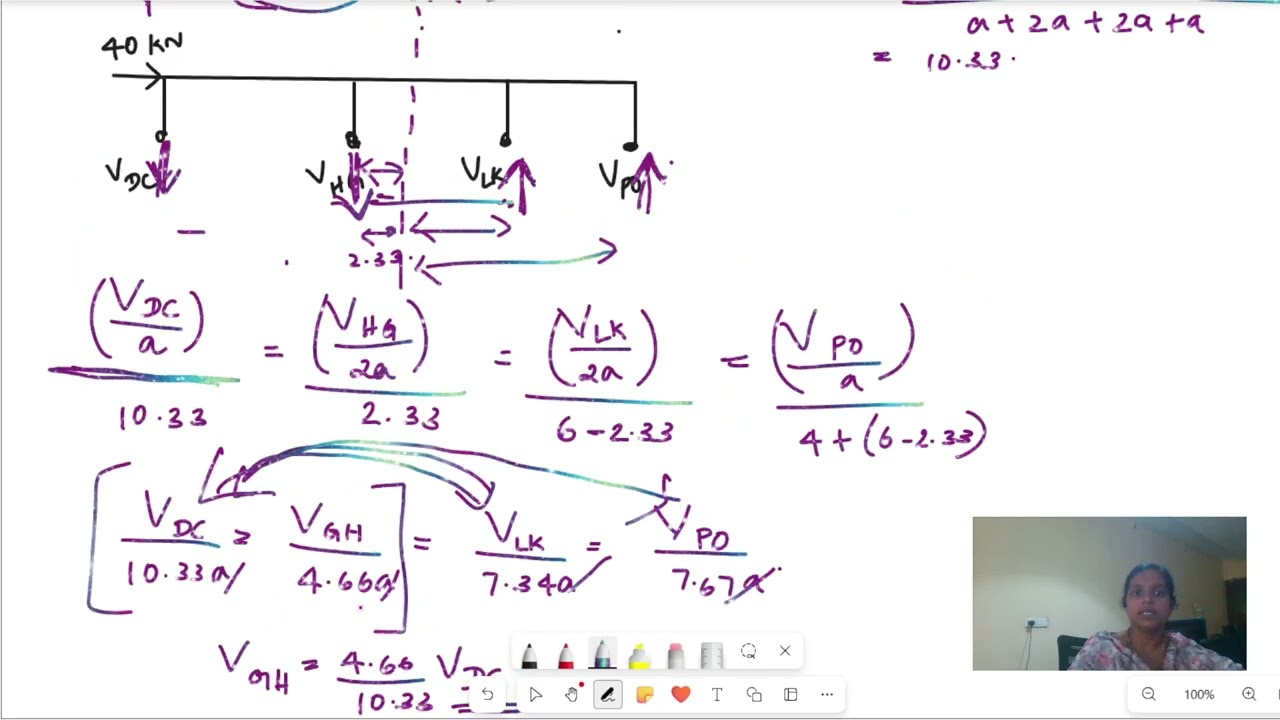 a + 2a + 2a + a
= 10.33.
40 KN
V_DC V_HG V_LK V_PO
2.33.
(V_DC / a) / 10.33 = (V_HG / 2a) / 2.33 = (V_LK / 2a) / 6-2.33 = (V_PO / a) / 4+(6-2.33)
[V_DC / 10.33a = V_GH / 4.66a] = V_LK / 7.34a = V_PO / 7.67a
V_GH = 4.66 / 10.33 V_DC
100%